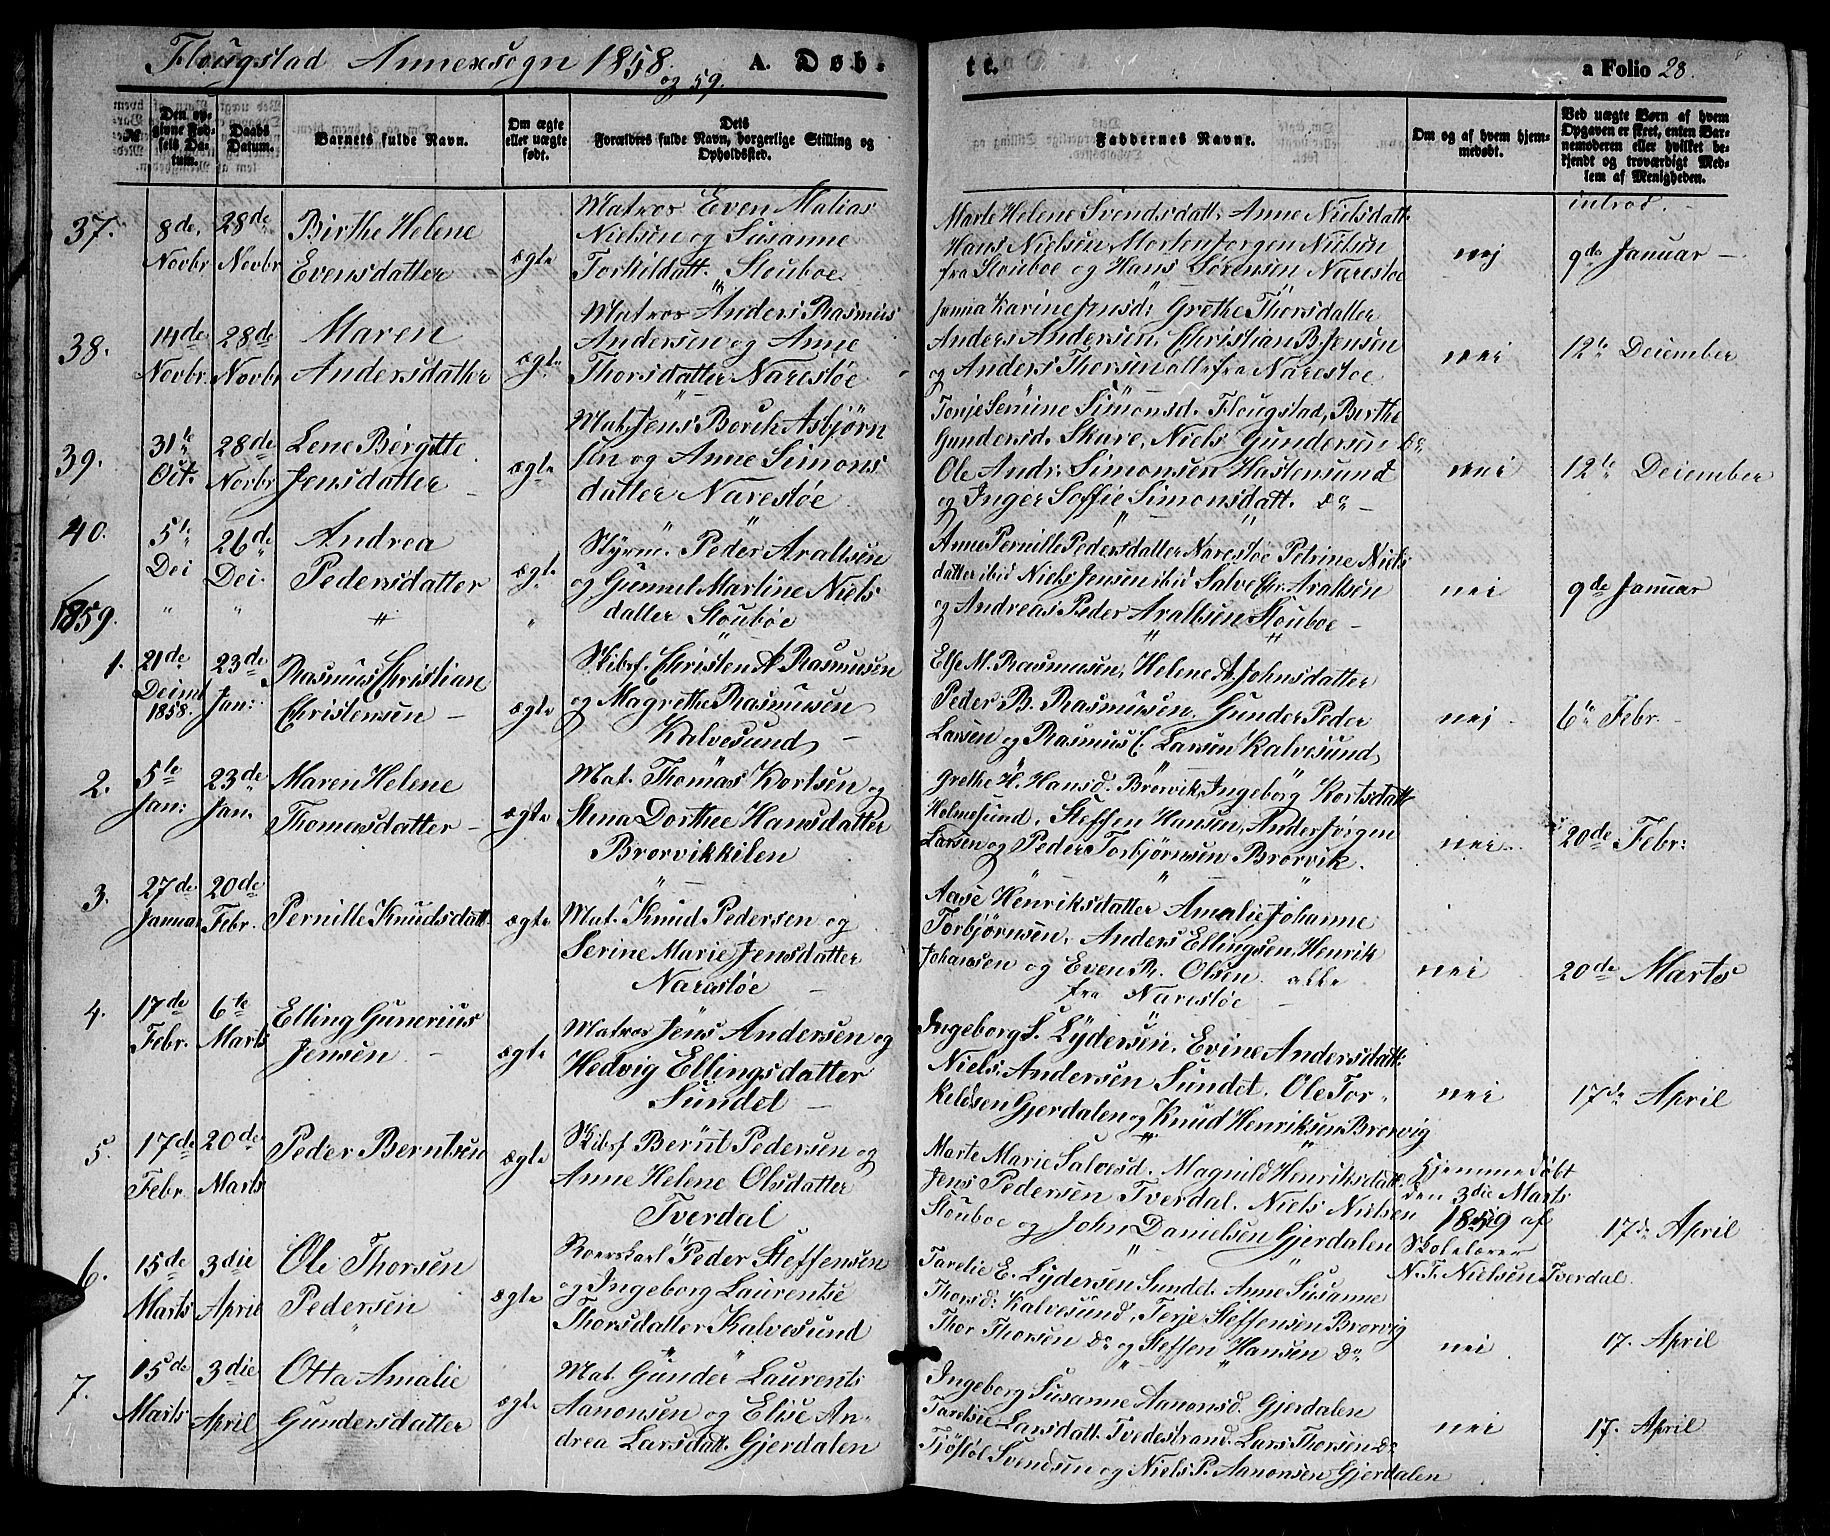 Flougstad Annexsogn 1858 og 59. A. Døb- te. a Folio 28.
№
Den opgivne Fødsels Datum.
Daabs Datum.
Barnets fulde Navn.
Om ægte eller uægte født.
Dets Forældres fulde Navn, borgerlige Stilling og Opholdssted.
Faddernes Navne.
Om og af hvem hjemmedøbt.
Ved uægte Børn af hvem Opgaven er skeet, enten Barnemoderen eller hvilket bekjendt og troværdigt Medlem af Menigheden.
introd.
37.
8de Novbr
28de Novbr
Birthe Helene
Evensdatter
ægte
Matros Even Matias
Nielsen og Susanne
Torkildatt. Stouboe
Marte Helene Svendsdatt. Anne Nielsdatt.
Hans Nielsen Morten Jørgen Nielsen
fra Stouboe og Hans Sørensen Narestoe
nej
9de Januar
38.
14de Novbr.
28de Novbr
Maren
Andersdatter
ægte
Matros Anders Rasmus
Andersen og Anne
Thorsdatter Narestøe
Janna Karine Jensd: Grethe Thorsdatter
Anders Andersen, Christian B. Jensen
og Anders Thorsen alle fra Narestoe
nei
12te December
39.
31te Oct.
28de Novbr
Lene Birgitte
Jensdatter
ægte
Mat. Jens Berch Asbjørn
sen og Anne Simons
datter Narestøe
Terje Semine Simonsd. Flougstad, Birthe
Gundersd. Skare, Niels Gundersen do
Ole Andr: Simonsen Hastensund
og Inger Soffie Simonsdatt. do
nei
12te December
40.
5te Dei
26de Dei.
Andrea
Pedersdatter
ægte
Styrm. Peder Araltsen
og Gunnel Martine Niels
datter Stoubøe
Anne Pernille Pedersdatter Narestøe Petrine Niels
datter ibid Niels Jensen ibid Salve Chr. Araltsen
og Andreas Peder Araltsen Stouboe
nei
9de Januar
1859.
1.
21de Decmb 1858.
23de Jan:
Rasmus Christian
Christensen
ægte
Skibsf. Christen A Rasmusen
og Magrethe Rasmusen
Kalvesund
Else M. Rasmusen, Helene A Johnsdatter
Peder B. Rasmusen, Gunder Peder
Larsen og Rasmus C. Larsen Kalvesund,
nej
6te Febr.
2.
5te Jan:
23de Jan.
Maren Helene
Thomasdatter
ægte
Mat. Thomas Kortsen og
Stena Dorthee Hansdatter
Brorvikkilen
Grethe H. Hansd. Brorvik, Ingeborg Kortsdatt
Holmesund, Steffen Hansen, Ander Jørgen
Larsen og Peder Torbjørnsen Brorvik.
nei
20de Febr:
3.
27de Januar
20de Febr.
Pernille Knudsdatt
ægte
Mat. Knud Pedersen og
Serine Marie Jensdatter
Narestøe
Aase Henriksdatter Amalie Johanne
Torbjørnsen, Anders Ellingsen, Henrik
Johansen og Even R. Olsen alle
fra Narestøe
nei
20de Marts
4.
17de Febr.
6te Marts
Elling Gunerius
Jensen
ægte
Matros Jens Andersen og
Hedvig Ellingsdatter
Sundet
Ingeborg S. Lydersen, Evine Andersdatt.
Niels Andersen Sundet, Ole Tor-
kildsen Gjerdalen og Knud Henriksen Brorvig
nei
17de April
5.
17de Febr
20de Marts
Peder Berntsen
ægte
Skibsf Bernt Pedersen og
Anne Helene Olsdatter
Tverdal
Marte Marie Salvesd. Magnild Henriksdatt.
Jens Pedersen Tverdal. Niels Nielsen
Stouboe og John Danielsen Gjerdalen
Hjemmedøbt
den 3die Marts
1859 af
Skolelærer
N. T. Nielsen Tverdal.
17de April
6.
15de Marts
3die April
Ole Thorsen
Pedersen
ægte
Roerskarl Peder Steffensen
og Ingeborg Laurentse
Thorsdatter Kalvesund
Tarelie E. Lydersen Sundet. Anne Susanne
Thorsd: Kalvesund, Terje Steffensen Brorvig
Thor Thorsen do og Steffen Hansen do
nei
17. April
7.
15de Marts
3die April
Otta Amalie
Gundersdatter
ægte
Mat. Gunder Laurents
Aanonsen og Elise An-
drea Larsdatt. Gjerdalen
Ingeborg Susanne Aanonsd. Gjerdalen
Tarelsie Larsdatt. Tvedestrand. Lars Thorsen do
Tjøstol Svendsen og Niels P. Aanonsen Gjerdalen
nei
17. April